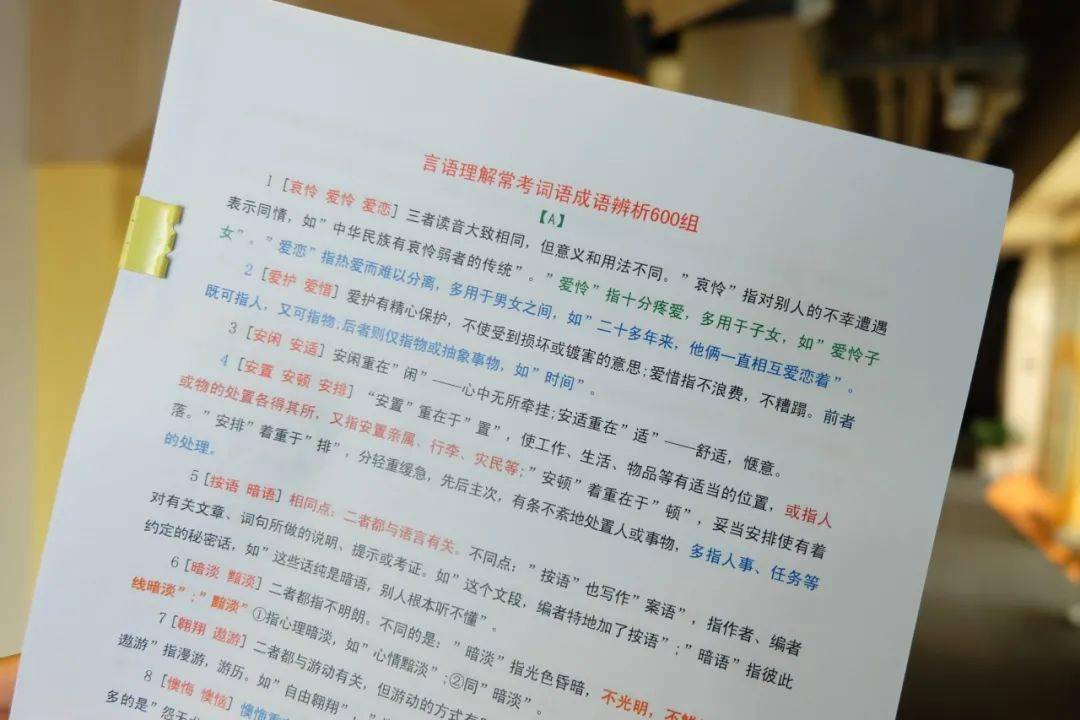 言语理解常考词语成语辨析600组
【A】
1 [哀怜 爱怜 爱恋] 三者读音大致相同，但意义和用法不同。”哀怜”指对别人的不幸遭遇
表示同情，如”中华民族有哀怜弱者的传统”。”爱怜”指十分疼爱，多用于子女，如”爱怜子
女”。”爱恋”指热爱而难以分离，多用于男女之间，如”二十多年来，他俩一直相互爱恋着”。
2 [爱护 爱惜] 爱护有精心保护，不使受到损坏或镀害的意思;爱惜指不浪费，不糟蹋。前者
既可指人，又可指物;后者则仅指物或抽象事物，如”时间”。
3 [安闲 安适] 安闲重在”闲”——心中无所牵挂;安适重在”适”——舒适，惬意。
4 [安置 安顿 安排] “安置”重在于”置”，使工作、生活、物品等有适当的位置，或指人
或物的处置各得其所，又指安置亲属、行李、灾民等;”安顿”着重在于”顿”，妥当安排使有着
落。”安排”着重于”排”，分轻重缓急，先后主次，有条不紊地处置人或事物，多指人事、任务等
的处理。
5 [按语 暗语] 相同点：二者都与语言有关。不同点：”按语”也写作”案语”，指作者、编者
对有关文章、词句所做的说明、提示或考证。如”这个文段，编者特地加了按语”;”暗语”指彼此
约定的秘密话，如”这些话纯是暗语，别人根本听不懂”。
6 [暗淡 黯淡] 二者都指不明朗。不同的是：”暗淡”指光色昏暗，不光明，不
线暗淡”;”黯淡”①指心理暗淡，如”心情黯淡”;②同”暗淡”。
7 [翱翔 遨游] 二者都与游动有关，但游动的方式有
遨游”指漫游，游历。如”自由翱翔”，
8 [懊悔 懊恼] 懊悔
多的是”怨天